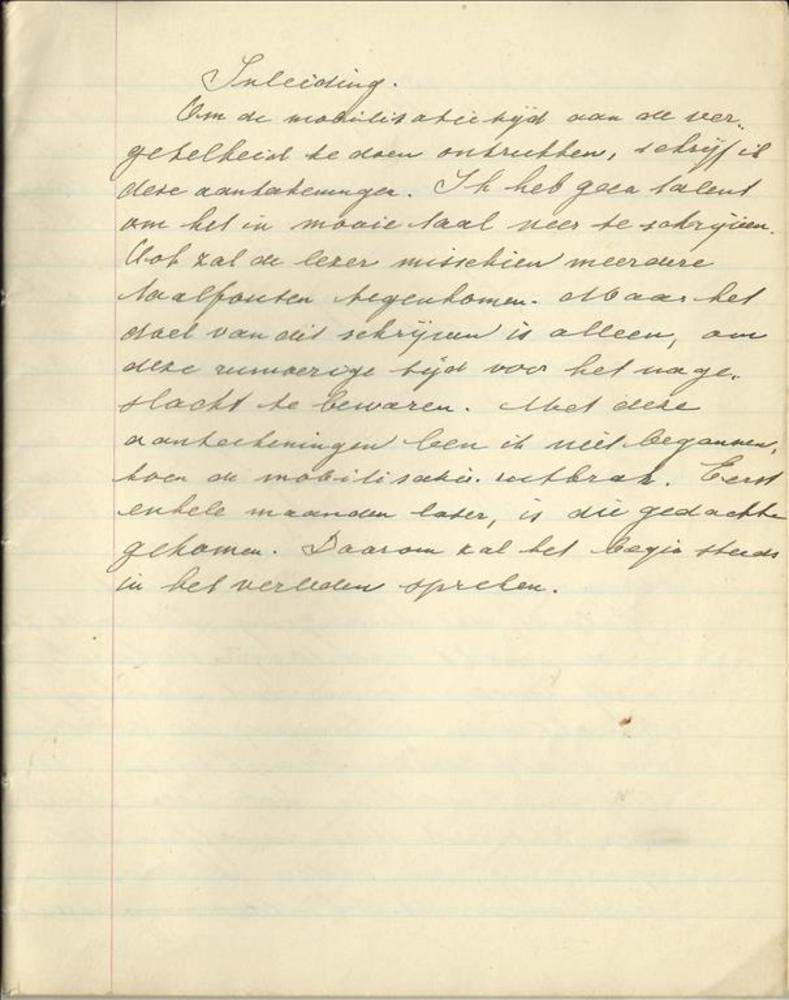 Inleiding.
Om de mobilisatietijd aan de ver„
getelheid te doen ontrukken, schrijf ik
deze aantekeningen. Ik heb geen talent
om het in mooie taal neer te schrijven.
Ook zal de lezer misschien meerdere
taalfouten tegenkomen. Maar het
doel van dit schrijven is alleen, om
deze rumoerige tijd voor het nage„
slacht te bewaren. Met deze
aantekeningen ben ik niet begonnen,
toen de mobilisatie uitbrak. Eerst
enkele maanden later, is die gedachte
gekomen. Daarom zal het begin steeds
in het verleden spreken.